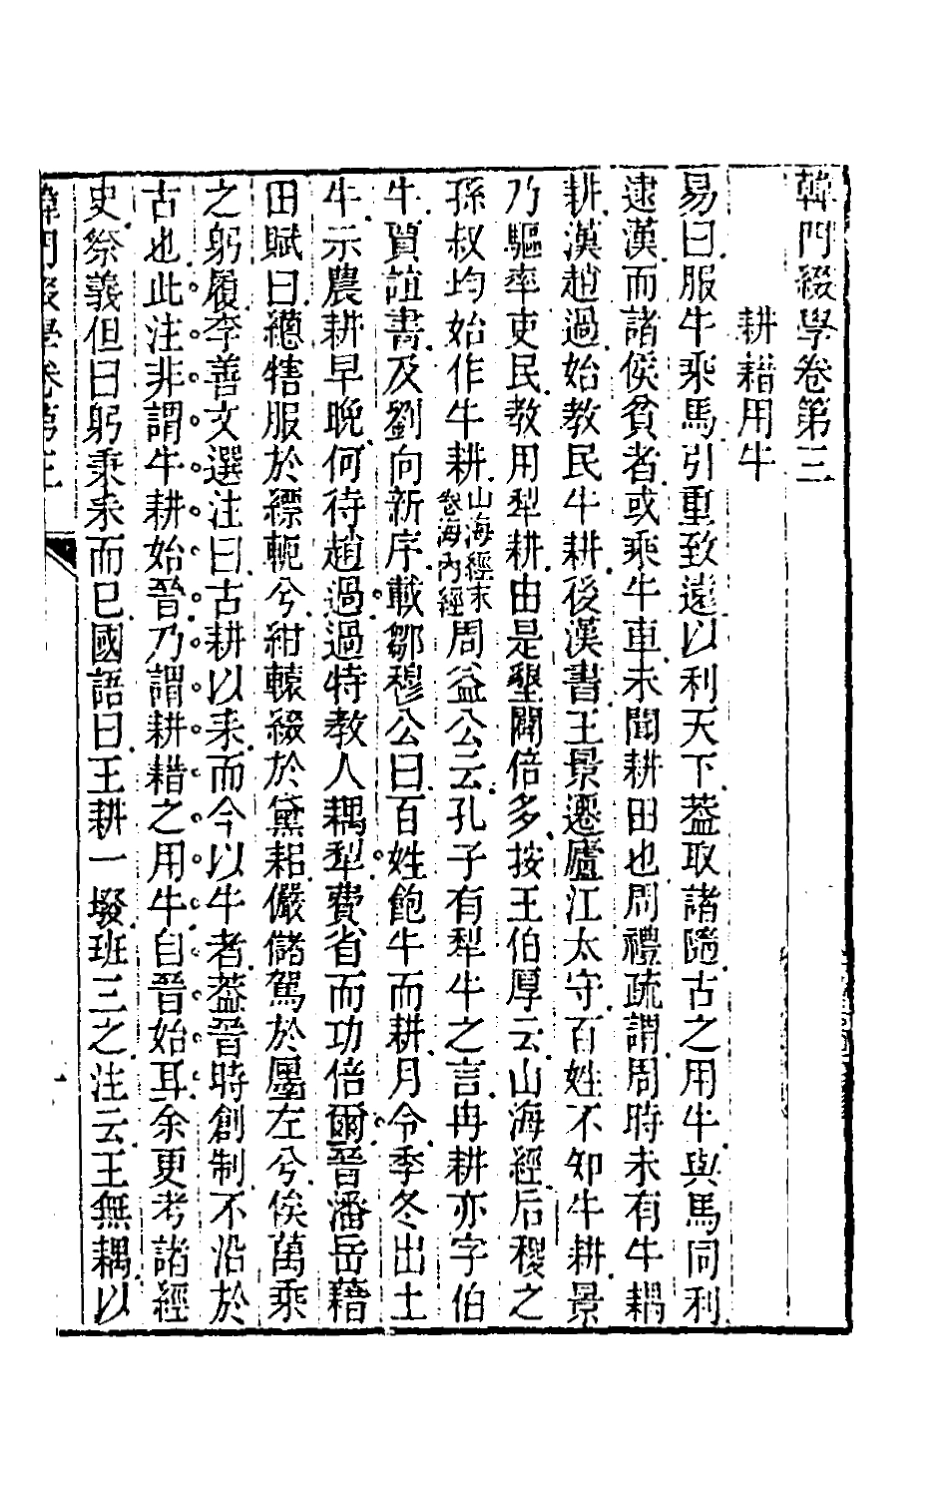 韓門綴學卷第三
耕耤用牛
易曰服牛乘馬引重致遠以利天下葢取諸隨古之用牛與馬同利
逮漢而諸侯貧者或乘牛車未聞耕田也周禮疏謂周時未有牛耦
耕漢趙過始教民牛耕後漢書王景遷廬江太守百姓不知牛耕景
乃驅率吏民教用犁耕由是墾闢倍多按王伯厚云山海經后稷之
孫叔均始作牛耕山海經末卷海內經周益公云孔子有犁牛之言冉耕亦字伯
牛賈誼書及劉向新序載鄒穆公曰百姓飽牛而耕月令季冬出土
牛示農耕早晚何待趙過過特教人耦犁費省而功倍爾晉潘岳藉
田賦曰緫犗服於縹軛兮紺轅綴於黛耜儼儲駕於廛左兮俟萬乘
之躬履李善文選注曰古耕以耒而今以牛者葢晉時創制不沿於
古也此注非謂牛耕始晉乃謂耕耤之用牛自晉始耳余更考諸經
史祭義但曰躬秉耒而已國語曰王耕一墢班三之注云王無耦以
韓門綴學卷第三
一